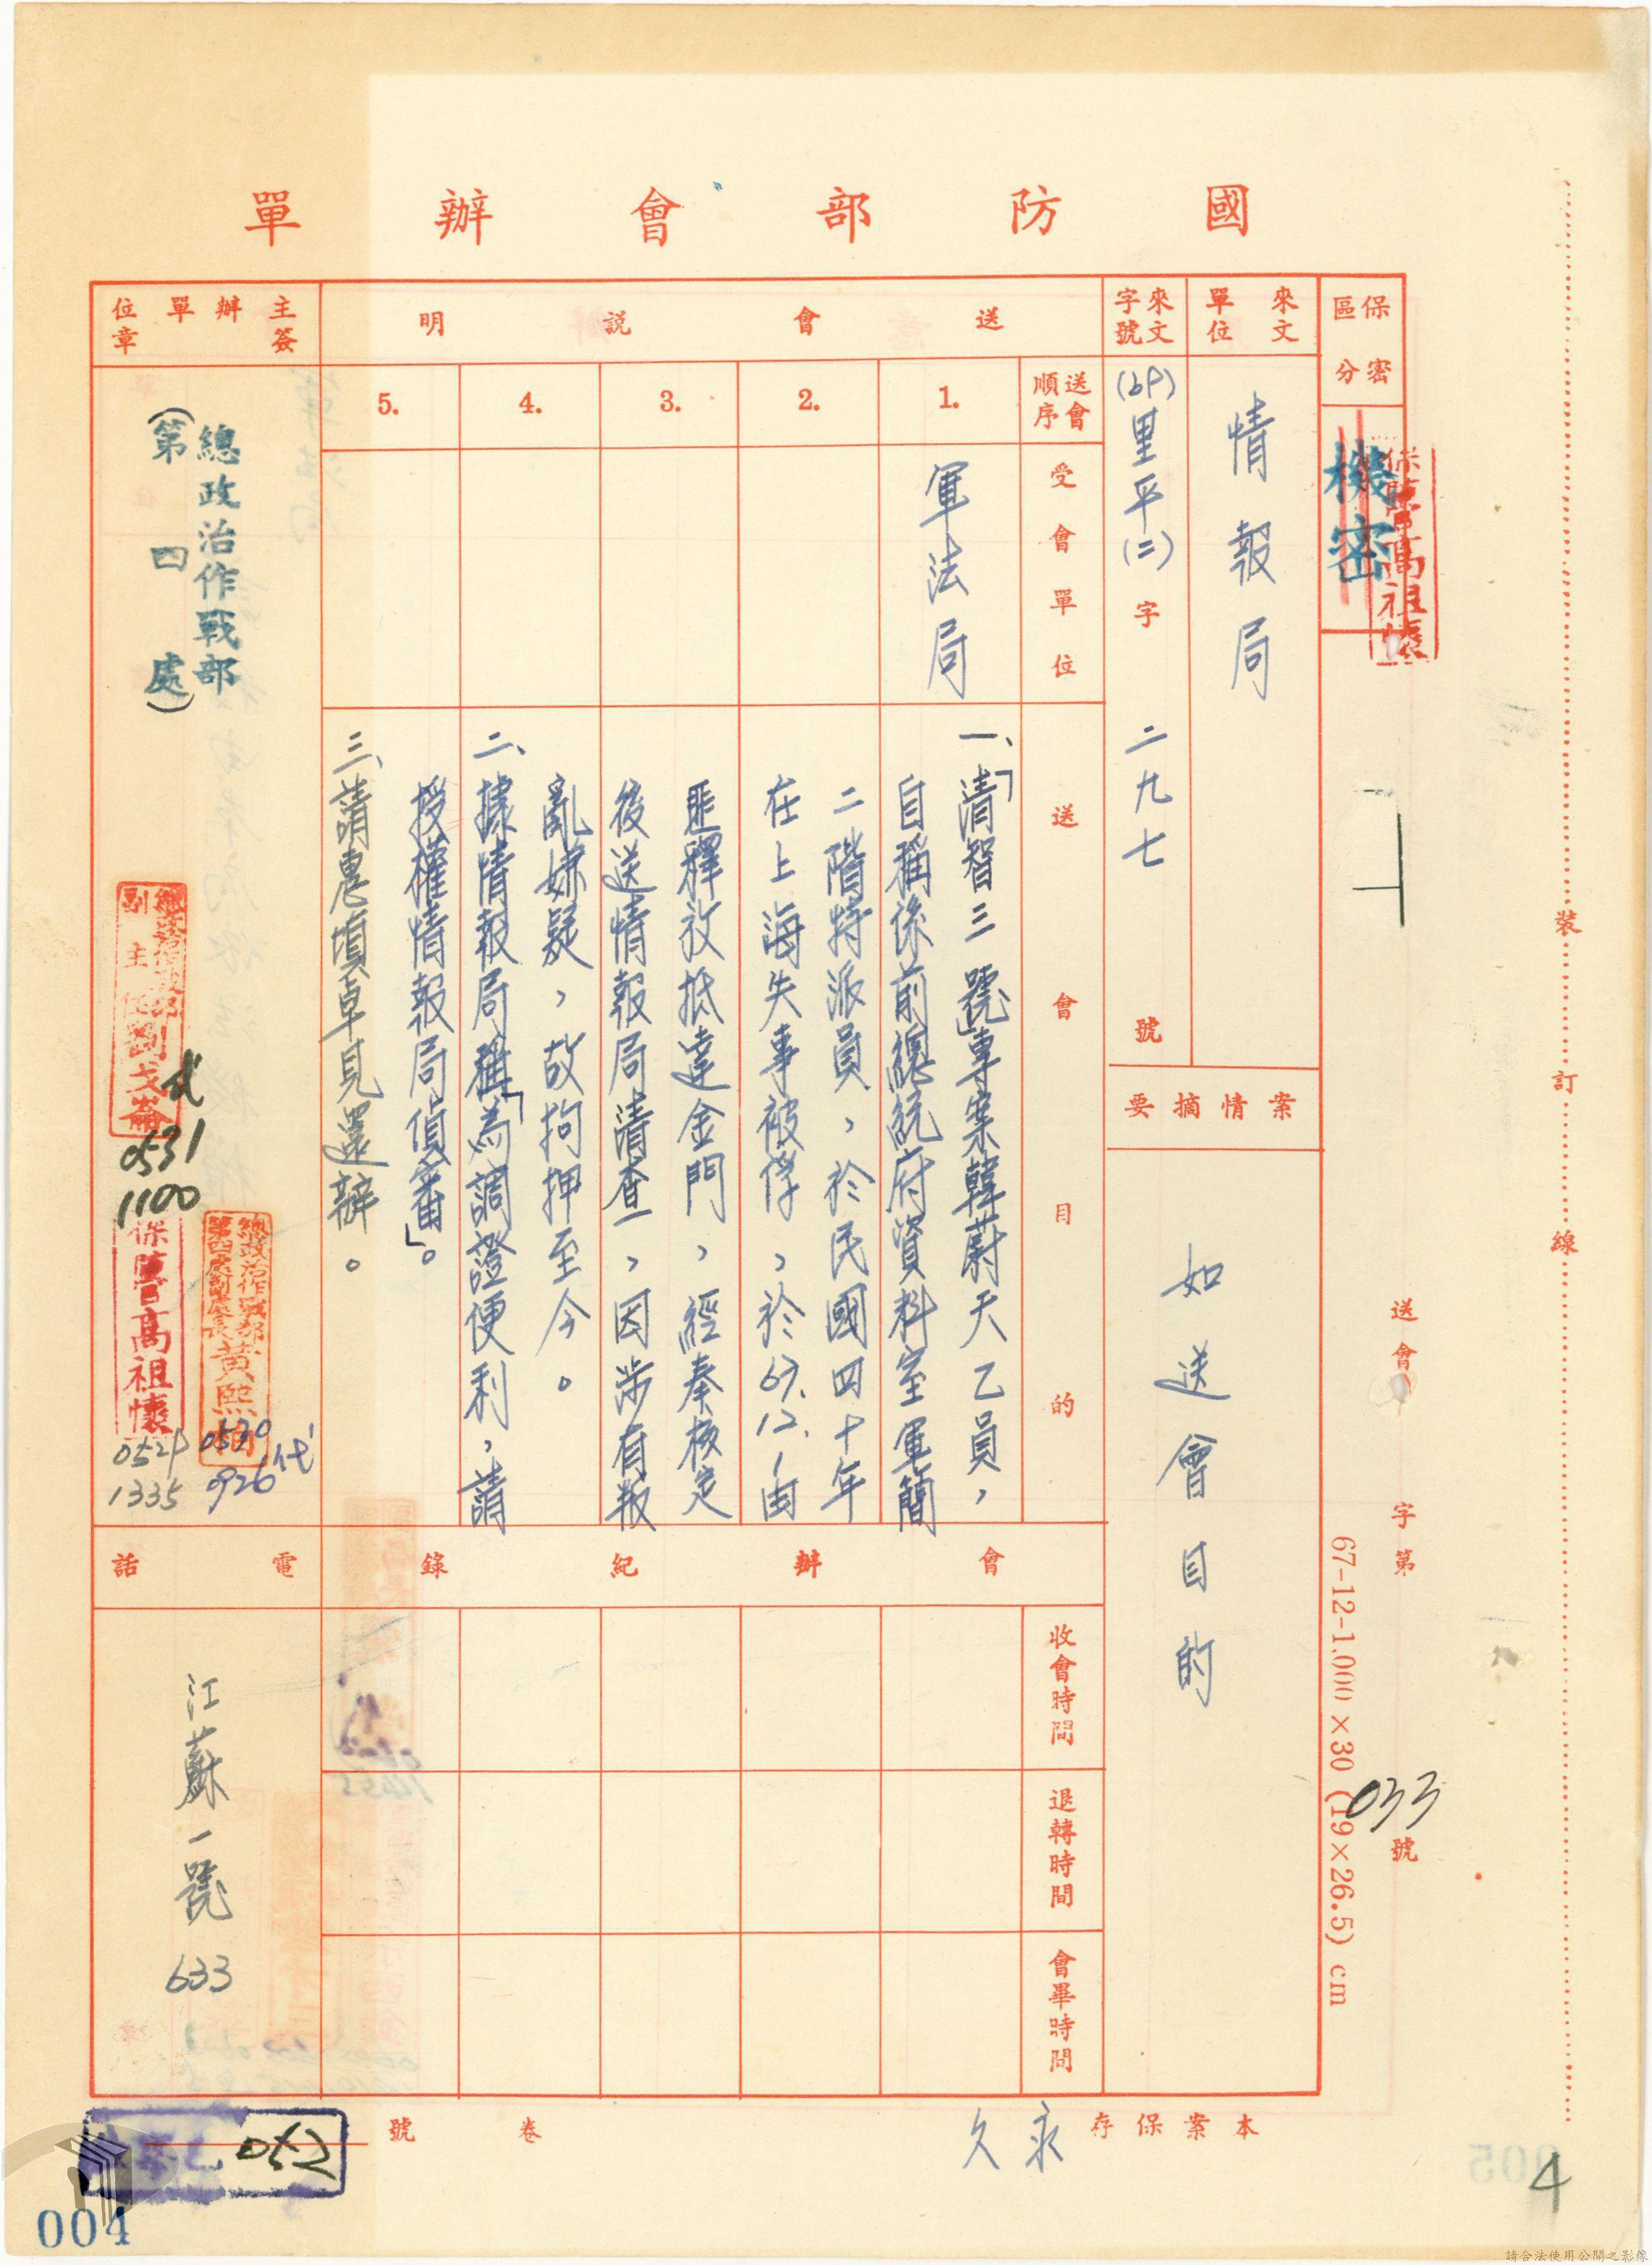 國防部會辦單
裝訂線
送會 字第 033 號
67-12-1.000×30 (19×26.5) cm
保密區分
機密
保防官高祖懷
來文單位
情報局
來文字號
(69)里平(二)字 二九七 號
案情摘要
如送會目的
送會說明
送會順序
受會單位
送會目的
1.
2.
3.
4.
5.
軍法局
一、「清智三號」專案韓蔚天乙員,
自稱係前總統府資料室軍簡
二階特派員,於民國四十年
在上海失事被俘,於67.12.1由
匪釋放抵達金門,經奉核定
後送情報局清查,因涉有叛
亂嫌疑,故拘押至今。
二、據情報局稱「為調證便利,請
授權情報局偵審」。
三、請惠塡卓見還辦。
會辦紀錄
收會時間
退轉時間
會畢時間
主辦單位簽章
總政治作戰部
(第四處)
總政治作戰部
副主任劉戈崙
0531
1100
總政治作戰部
第四處副處長黃熙
代
0530
0926
保防官高祖懷
0529
1335
電話
江蘇一號
633
本案保存 永久
卷號
052
004
4
請合法使用公開之影像